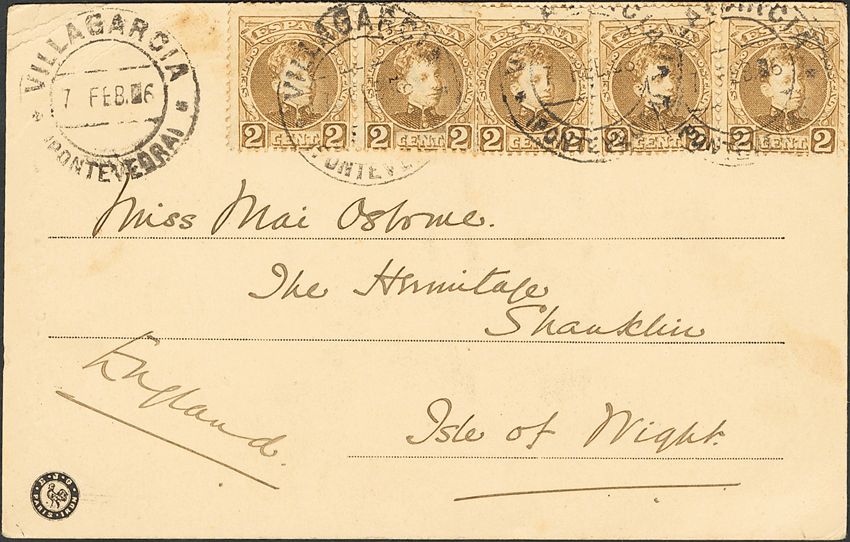 VILLAGARCIA
7 FEB. 06
(PONTEVEDRA)
ESPAÑA ESPAÑA ESPAÑA ESPAÑA ESPAÑA
2 CENT 2 2 CENT 2 2 CENT 2 2 CENT 2 2 CENT 2
VILLAGARCIA
Miss Mai Osborne.
The Hermitage
Shanklin
England.
Isle of Wight.
PARIS-IRUN